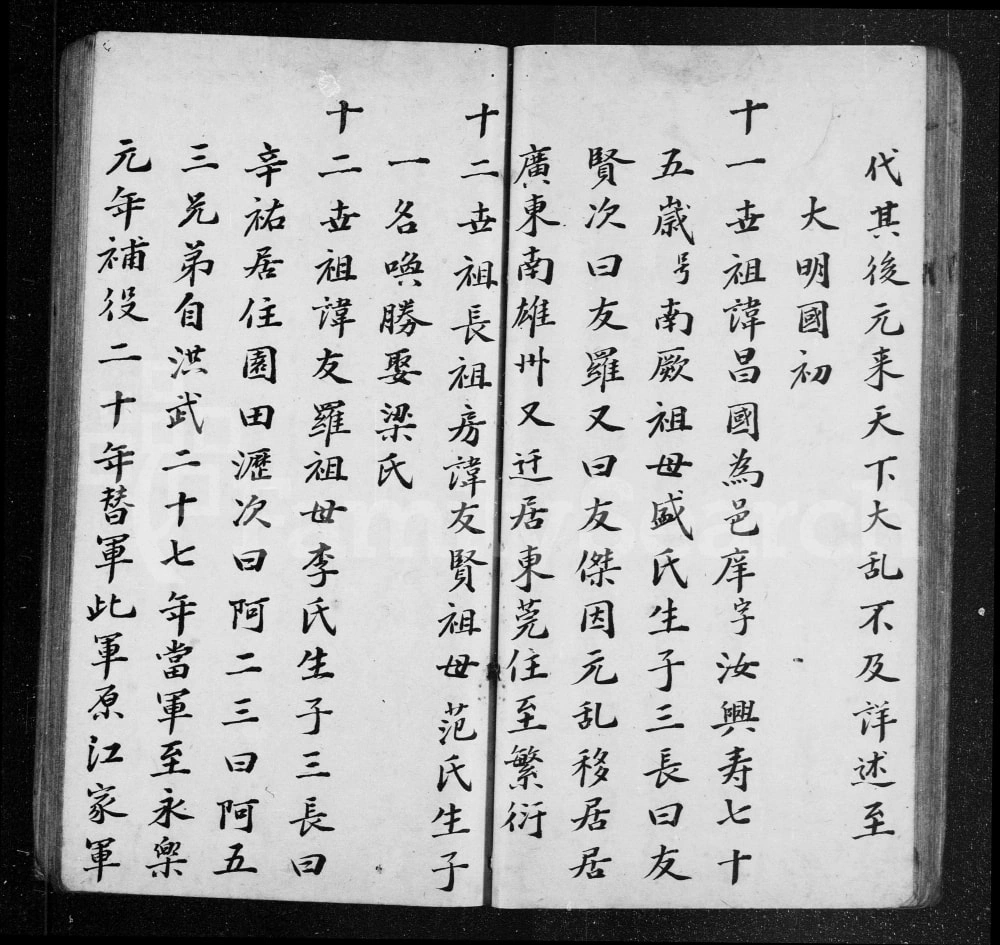 代其後元来天下大乱不及詳述至
大明國初
十一世祖諱昌國為邑庠字汝興寿七十
五歳号南厥祖母盛氏生子三長曰友
賢次曰友羅又曰友傑因元乱移居居
廣東南雄州又迁居東莞住至繁衍
十二世祖長祖房諱友賢祖母范氏生子
一名喚勝娶梁氏
十二世祖諱友羅祖母李氏生子三長曰
辛祐居住園田瀝次曰阿二三曰阿五
三兄弟自洪武二十七年當軍至永樂
元年補役二十年替軍此軍原江家軍
FamilySearch